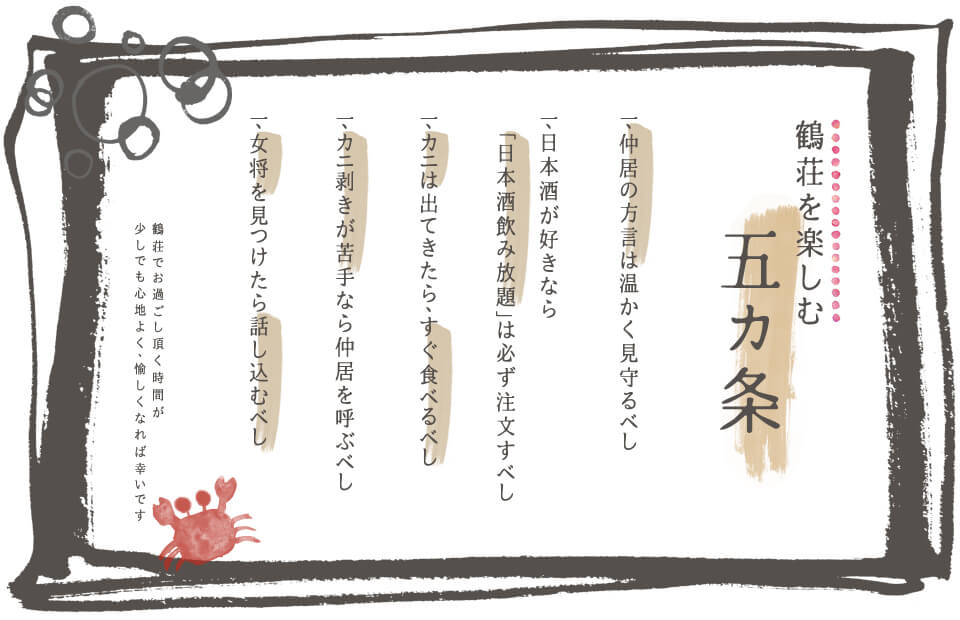 鶴荘を楽しむ
五カ条
一、仲居の方言は温かく見守るべし
一、日本酒が好きなら
「日本酒飲み放題」は必ず注文すべし
一、カニは出てきたら、すぐ食べるべし
一、カニ剥きが苦手なら仲居を呼ぶべし
一、女将を見つけたら話し込むべし
鶴荘でお過ごし頂く時間が
少しでも心地よく、愉しくなれば幸いです